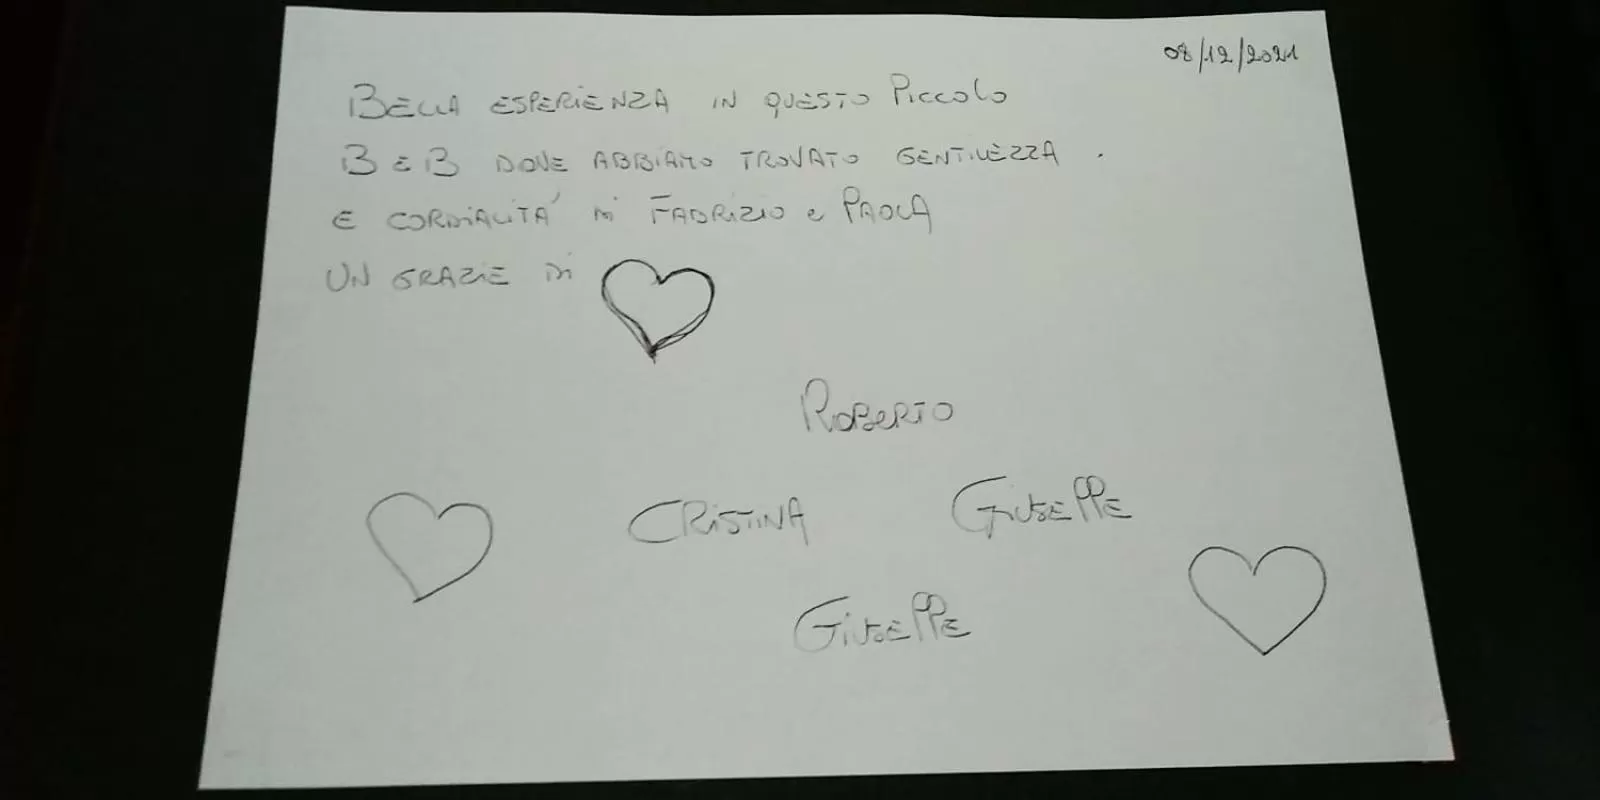 08/12/2021
BELLA ESPERIENZA IN QUESTO PICCOLO
B e B DOVE ABBIAMO TROVATO GENTILEZZA .
E CORDIALITA' DI FABRIZIO e PAOLA
UN GRAZIE DI
ROBERTO
CRISTINA GIUSEPPE
GIUSEPPE